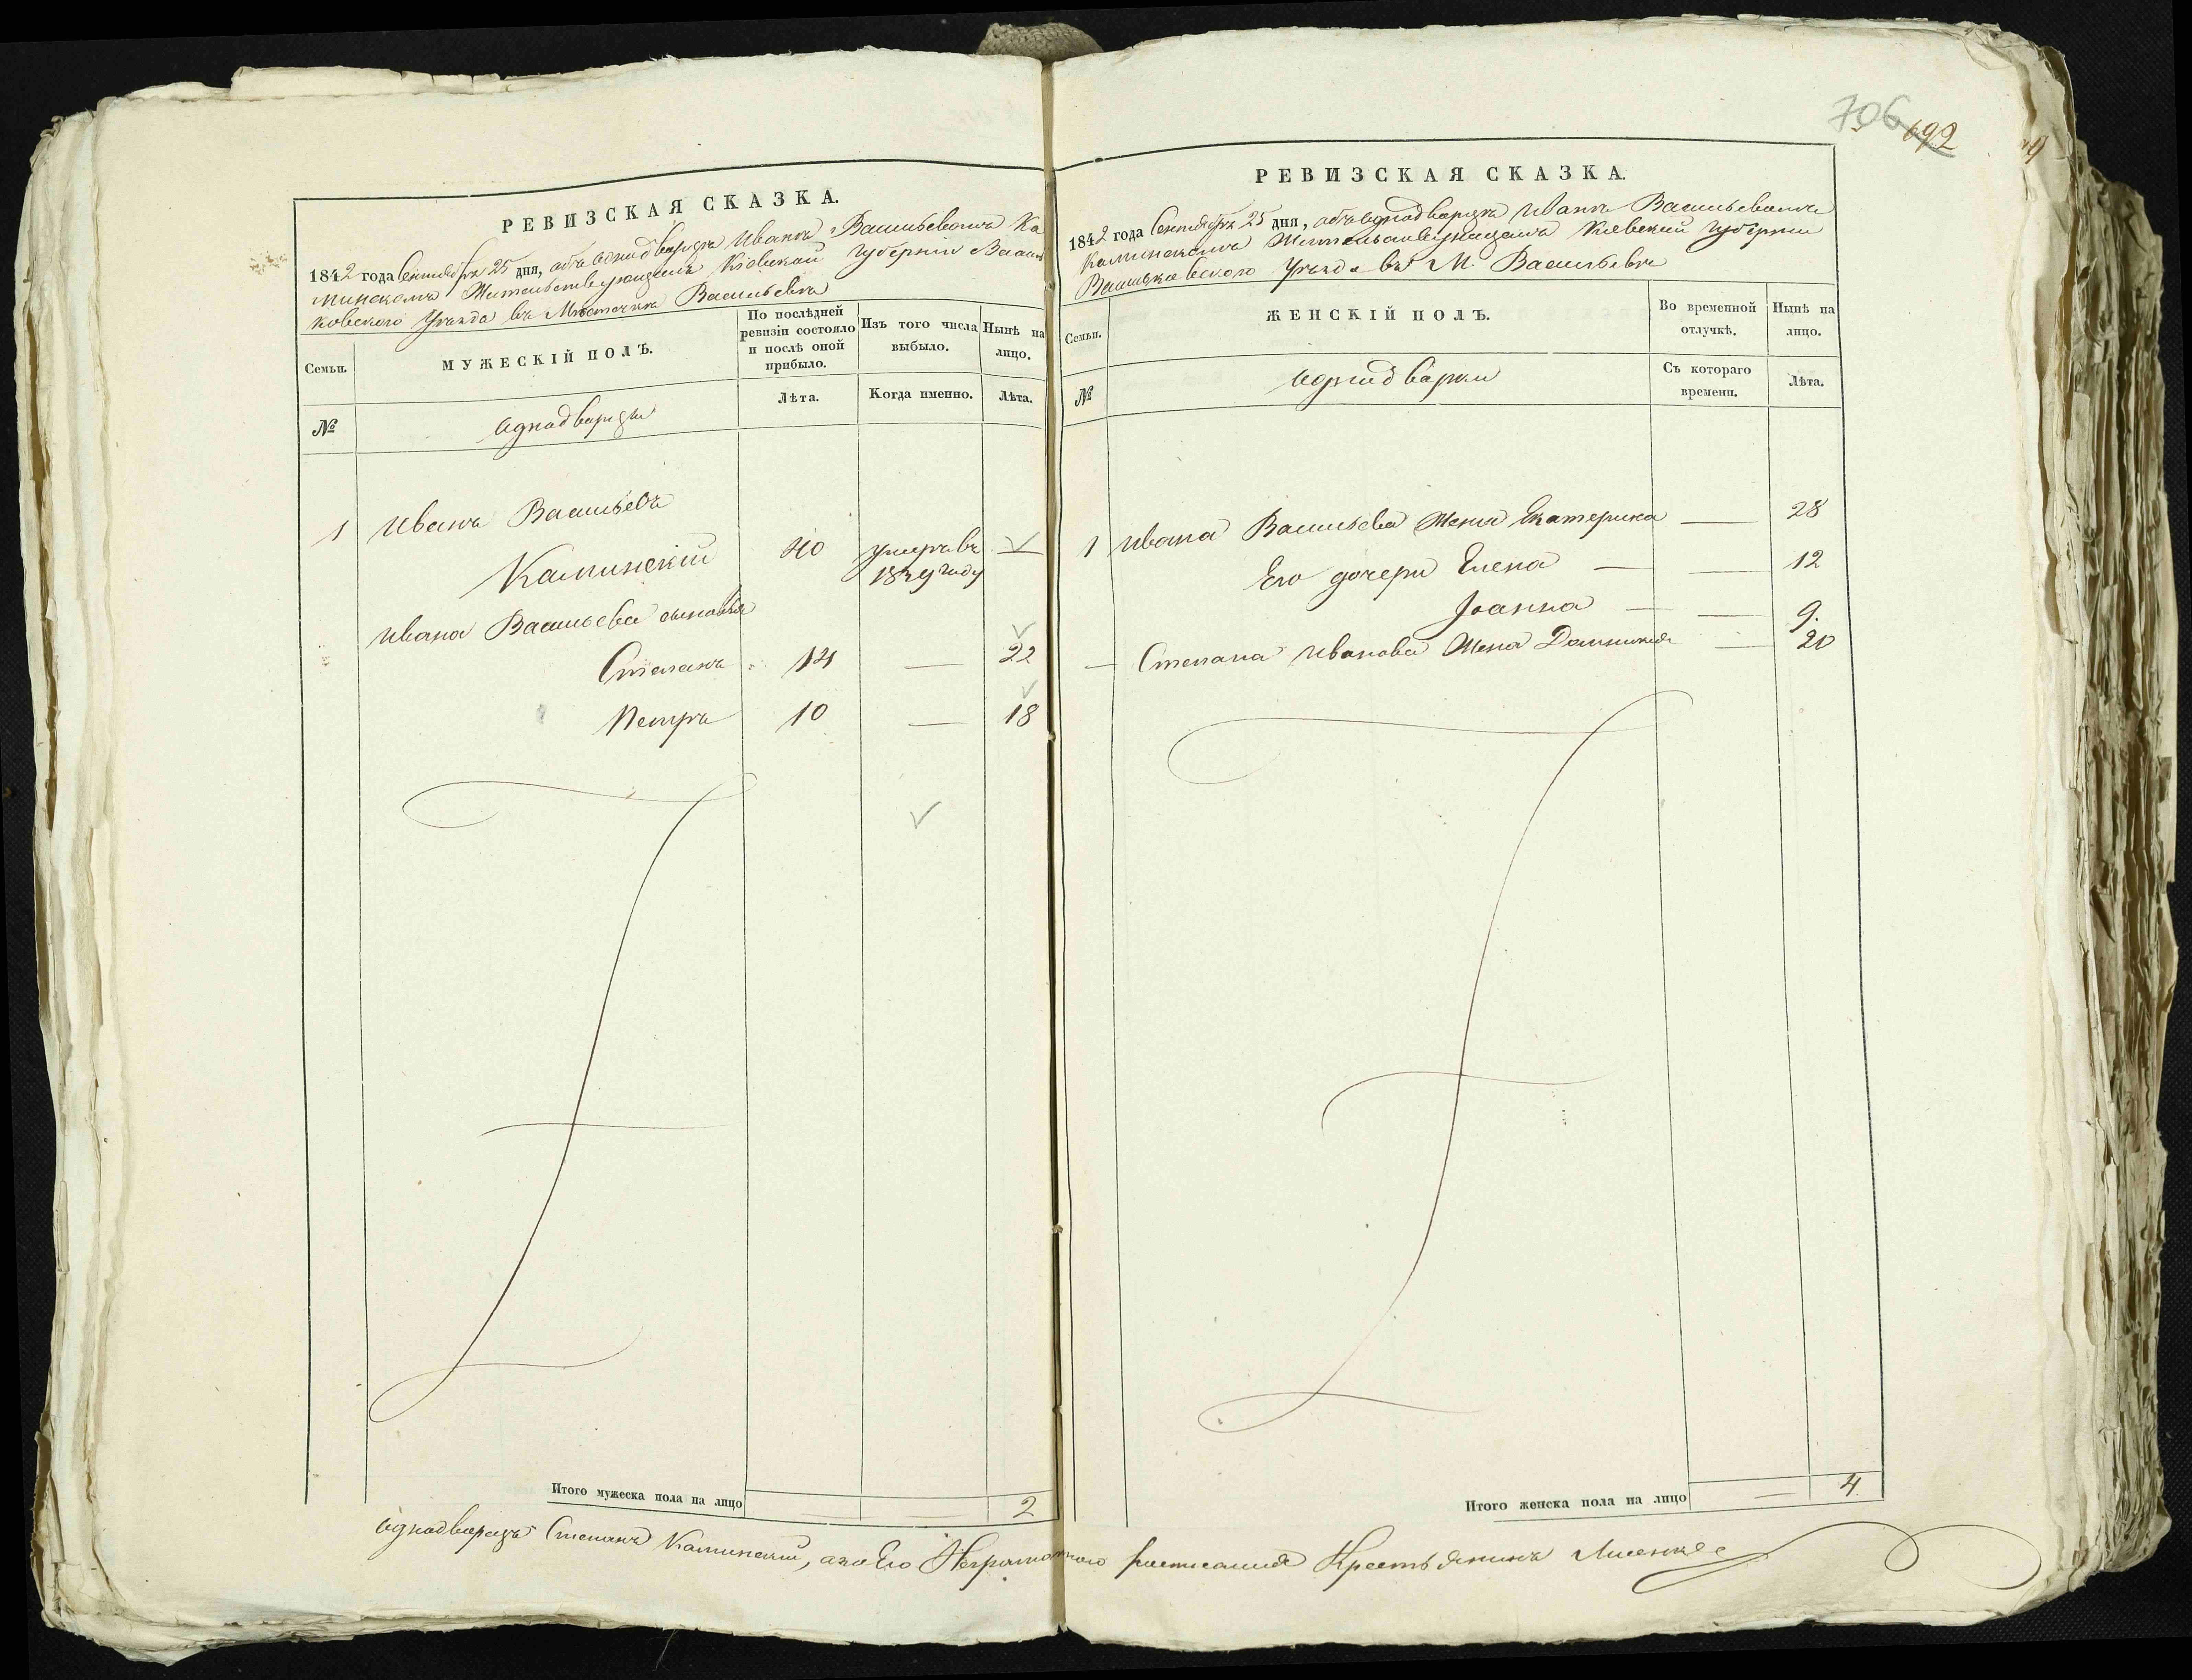 706
692
РЕВИЗСКАЯ СКАЗКА.
1842 года Сентября 25 дня, объ однодворцѣ Иванѣ Васильевомъ Ка
минскомъ Жительствующемъ Кіевской Губерніи Василь
ковскаго Уѣзда въ Мѣстечкѣ Васильевкѣ
Семьи.
МУЖЕСКІЙ ПОЛЪ.
По послѣдней
ревизіи состояло
и послѣ оной
прибыло.
Изъ того числа
выбыло.
Нынѣ на
лицо.
№
однодворцы
Лѣта.
Когда именно.
Лѣта.
1 Иванъ Васильевъ
Каминскій 40 умеръ въ —
1839 году
Ивана Васильева сыновья
Степанъ 14 — 22
Петръ 10 — 18
Итого мужеска пола на лицо — — 2
РЕВИЗСКАЯ СКАЗКА.
1842 года Сентября 25 дня, объ однодворцѣ Иванѣ Васильевомъ
Каминскомъ Жительствующемъ Кіевской Губерніи
Васильковского Уѣзда въ М. Васильевкѣ
Семьи.
ЖЕНСКІЙ ПОЛЪ.
Во временной
отлучкѣ.
Нынѣ на
лицо.
№
однодворки
Съ котораго
времени.
Лѣта.
1 Ивана Васильева Жена Екатерина — 28
Его дочери Елена — — 12
Іоанна — — 9.
— Степана Иванова Жена Домникія — 20
Итого женска пола на лицо — 4
однодворецъ Степанъ Каминскій, а за Его Неграмотного росписался Крестьянинъ Лисенко